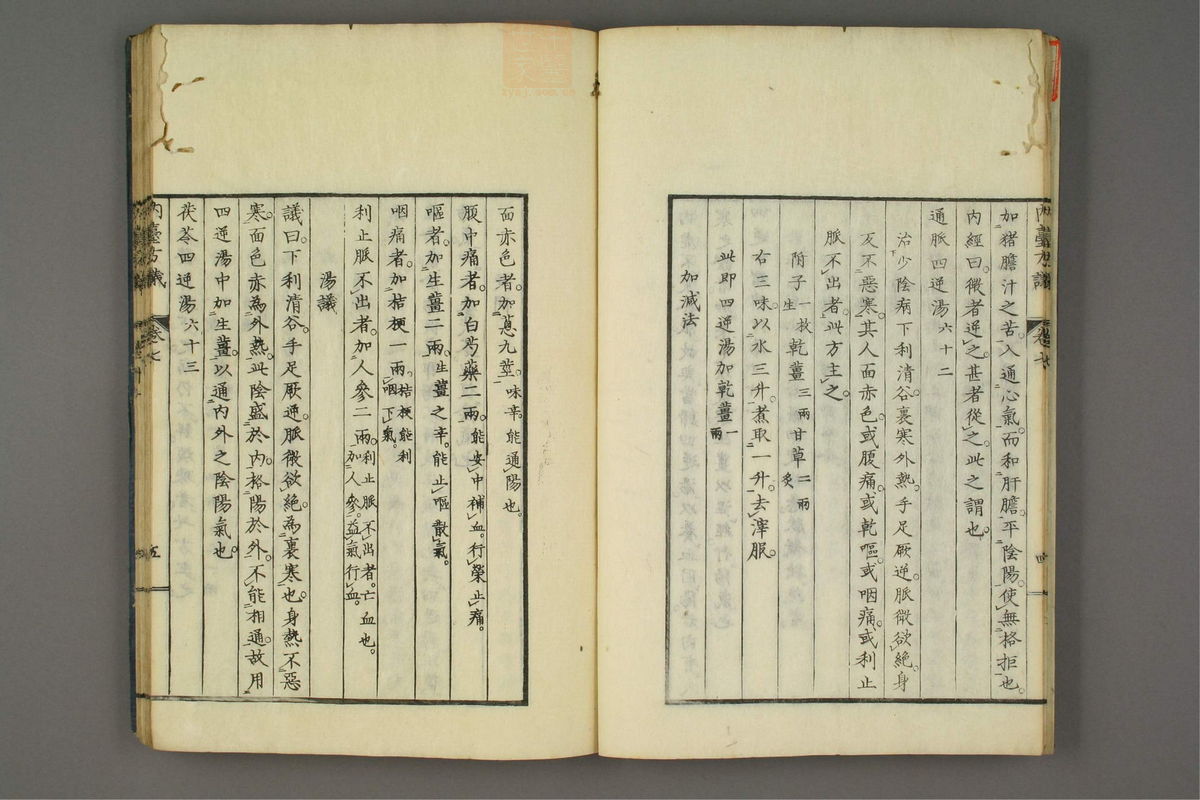 加猪膽汁之苦。入通心氣。而和肝膽。平陰陽。使無格拒也。
內經曰。微者逆之。甚者從之。此之謂也
通脈四逆湯六十二
治少陰病下利清谷。裏寒外熱。手足厥逆。脈微欲絕。身
反不惡寒。其人面赤色。或腹痛。或乾嘔。或咽痛。或利止
脈不出者。此方主之
附子一枚生 乾薑三兩 甘草二兩炙
右三味。以水三升。煮取一升。去滓服。
此即四逆湯加乾薑一兩
加減法
內臺方議 卷七 四
面赤色者。加葱九莖。味辛。能通陽也。
腹中痛者。加白芍藥二兩。能安中補血。行榮止痛。
嘔者。加生薑二兩。生薑之辛。能止嘔散氣。
咽痛者。加桔梗一兩。桔梗能利咽下氣。
利止脈不出者。加人參二兩。利止脈不出者。亡血也。加人參。益氣行血。
湯議
議曰。下利清谷。手足厥逆。脈微欲絕。為裏寒也。身熱不惡
寒。面色赤。為外熱。此陰盛於內。格陽於外。不能相通。故用
四逆湯中加生薑。以通內外之陰陽氣也。
茯苓四逆湯六十三
內臺方議 卷七 五